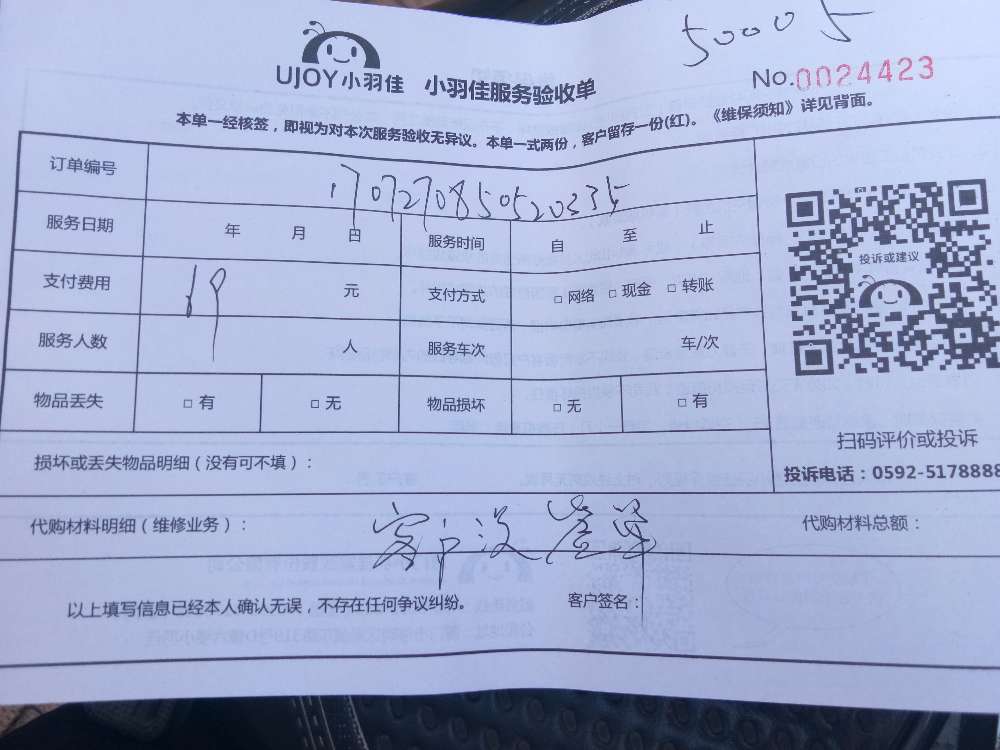 50005
UJOY小羽佳 小羽佳服务验收单
No.0024423
本单一经核签，即视为对本次服务验收无异议。本单一式两份，客户留存一份(红)。《维保须知》详见背面。
订单编号 1707270850520335
服务日期 年 月 日 服务时间 自 至 止
投诉或建议
支付费用 19 元 支付方式 □ 网络 □ 现金 □ 转账
服务人数 人 服务车次 车/次
物品丢失 □ 有 □ 无 物品损坏 □ 无 □ 有
扫码评价或投诉
损坏或丢失物品明细（没有可不填）：
投诉电话：0592-5178888
代购材料明细（维修业务）： 客户没签单 代购材料总额：
以上填写信息已经本人确认无误，不存在任何争议纠纷。 客户签名：